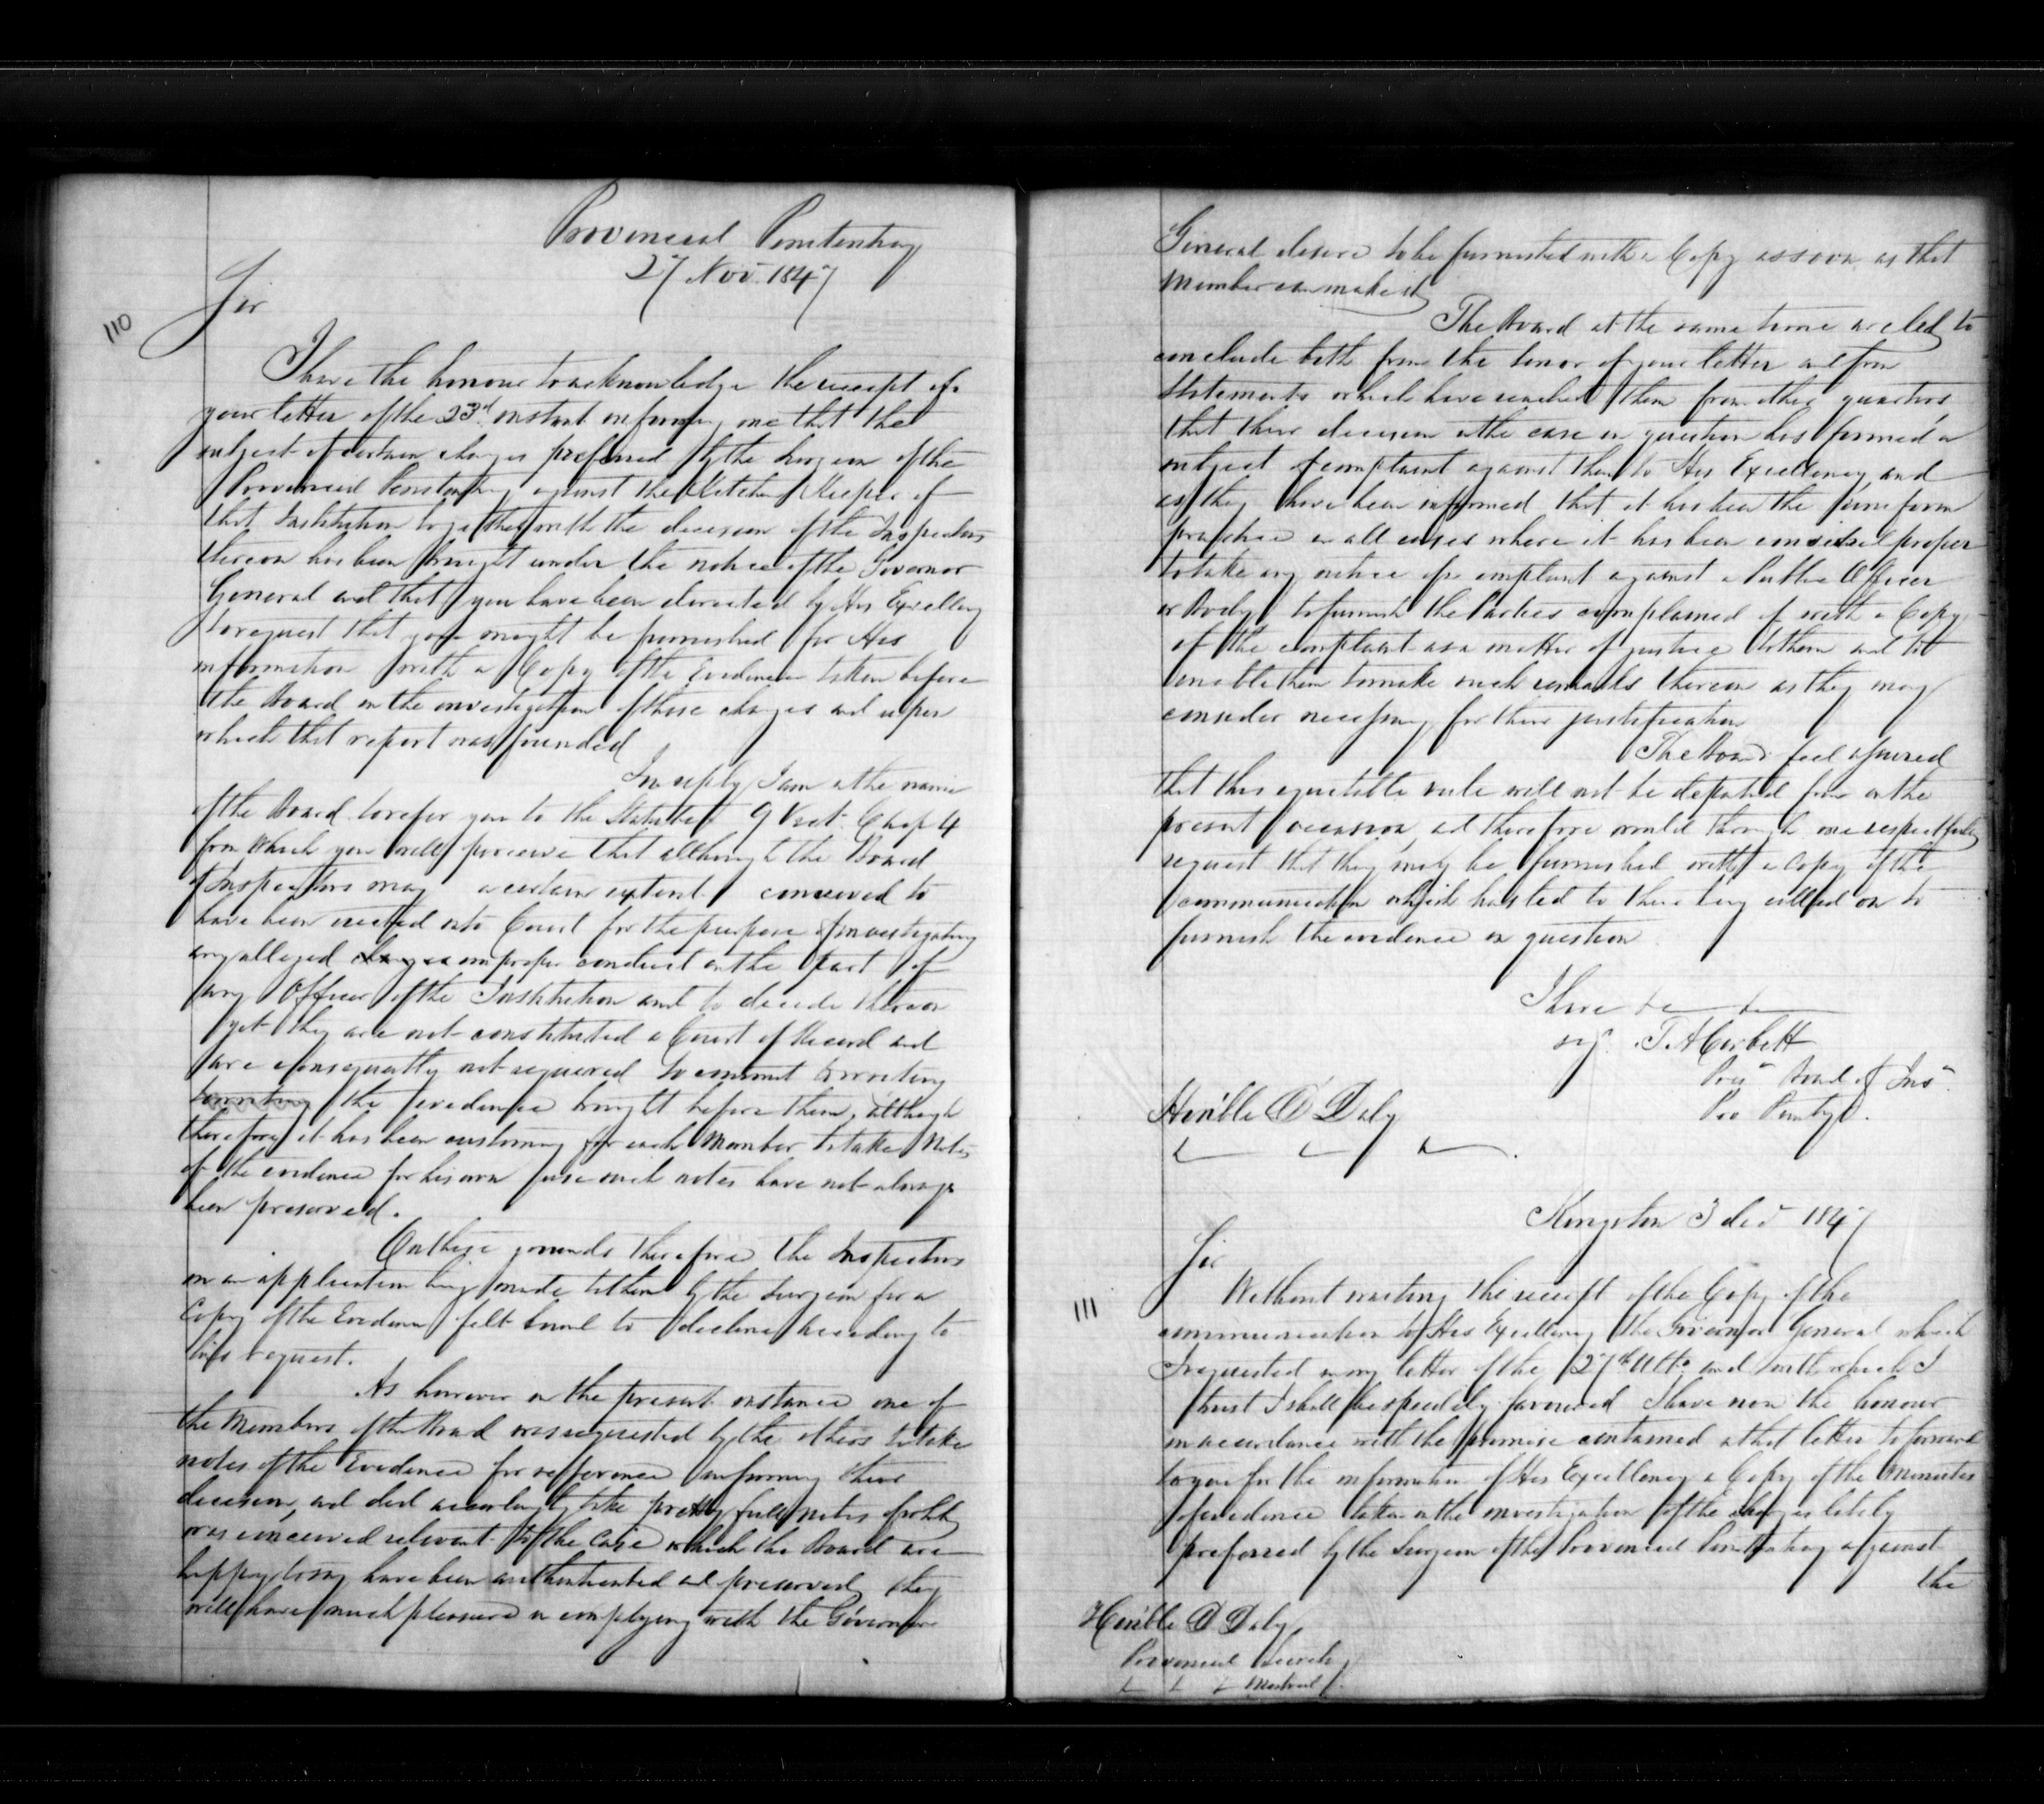 Provincial Penitentiary
27 Nov. 1847
Sir
110
I have the honour to acknowledge the receipt of
your letter of the 23d. instant informing me that the
subject of certain charges preferred by the Surgeon of the
Provincial Penitentiary against the Kitchen Keeper of
that Institution together with the decision of the Inspectors
thereon has been brought under the notice of the Governor
General and that you have been directed by His Excellency
to request that you might be furnished for His
information with a Copy of the Evidence taken before
the Board in the investigation of those charges and upon
which that report was founded
In reply I am in the name
of the Board to refer you to the Statute 9 Vict. Chap 4
from which you will perceive that although the Board
of Inspectors may a certain extent conceived to
have been erected into Court for the purpose of investigating
any alleged charges improper conduct on the part of
any Officer of the Institution and to decide thereon
yet they are not constituted a Court of Record and
are consequently not required to commit to writing
to writing the evidence brought before them, although
therefore it has been customary for each Member to take Notes
of the evidence for his own use such notes have not always
been preserved.
On these grounds therefore the Inspectors
on an application being made to them by the Surgeon for a
Copy of the Evidence felt bound to decline acceding to
his request.
As however in the present instance one of
the Members of the Board was requested by the others to take
notes of the Evidence for refference in forming their
decision, and did accordingly take pretty full notes of what
was conceived relevant to the Case which the Board are
happy to say have been authenticated and preserved, they
will have much pleasure in complying with the Governor
General desire to be furnished with a Copy as soon as that
Member can make it
The Board at the same time are led to
conclude both from the tenor of your letter and from
statements which have reached them from other quarters
that their decision in the case in question has formed a
subject of complaint against them to His Excellency and
as they have been informed that it has been the uniform
practice in all cases where it has been considered proper
to take any notice of a complaint against a Public Officer
or Body to furnish the Parties complained of with a Copy
of the complaint as a matter of justice to them and to
enable them to make such remarks thereon as they may
consider necessary for their justification
The Board feel assured
that this equitable rule will not be departed from on the
present occasion, and therefore would through me respectfully
request that they may be furnished with a copy of the
communication which has led to their being called on to
furnish the evidence in question
I have &c &c
sig. T. A Corbett
Pres. Board of Ins.
Pro Penity.
Honble D Daly
Kingston 3 Dec 1847
Sir
111
Without waiting the receipt of the Copy of the
communication to His Excellency the Governor General which
I requested in my letter of the 27th Ulto and with which I
trust I shall be speedily favoured I have now the honour
in accordance with the promise contained in that letter to forward
to you for the information of His Excellency a Copy of the Minutes
of evidence taken in the investigation of the charges lately
preferred by the Surgeon of the Provincial Penitentiary against
the
Honble D Daly
Provincial Secrety
Montreal